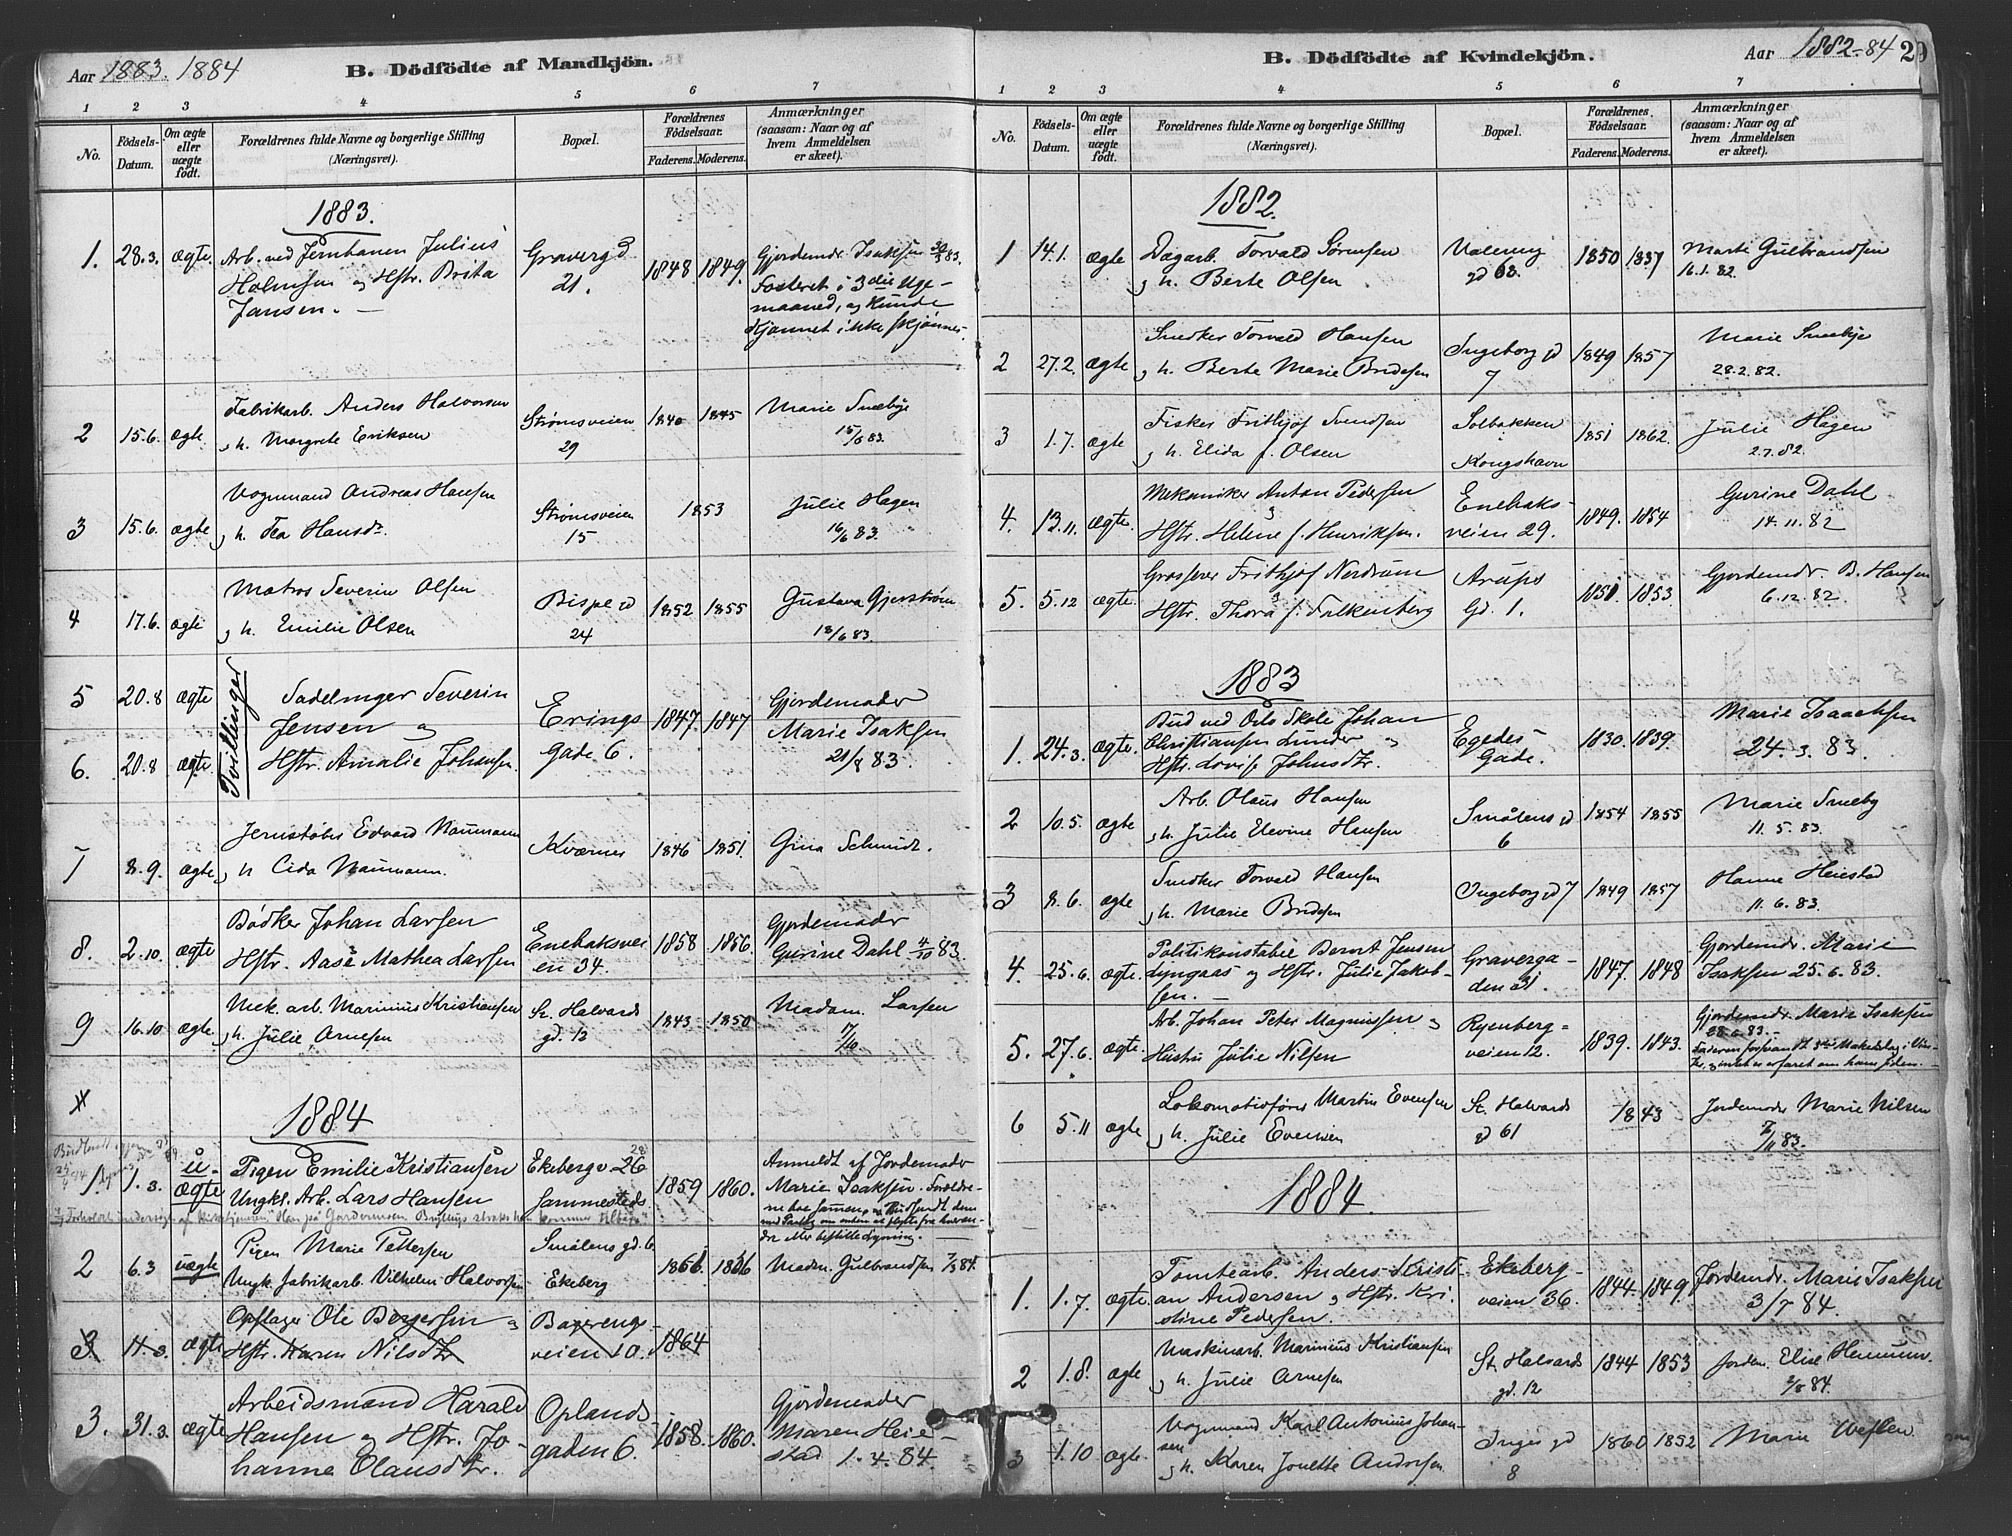 Aar 1883. 1884
B. Dödfödte af Mandkjön.
1 2 3 4 5 6 7
No.
Födsels-Datum.
Om ægte eller uægte födt.
Forældrenes fulde Navne og borgerlige Stilling (Næringsvei).
Bopæl.
Forældrenes Födselsaar.
Faderens. Moderens.
Anmærkninger (saasom: Naar og af hvem Anmeldelsen er skeet).
1883.
1. 28.3. ægte. Arb. ved Jernbanen Julius Gravergd 1848 1849. Gjordemdr Isaksen 83.
Holmsen og Hstr. Brita 21. Fosteret i 3die
Jansen. maaned, og kunde
Kjønnet ikke skjønnes.
2 15.6. ægte Fabrikarb. Anders Halvorsen Strømsveien 1840 1845 Marie Smebye
og h. Margrete Eriksen 29 15/6 83.
3 15.6. ægte Vognmand Andreas Hansen Strømsveien 1853 Julie Hagen
og h. Tea Hansdr. 15 16/6 83.
4 17.6. ægte Matros Severin Olsen Bispegd 1852 1855 Gustava Gjerstrøm
og h. Emilie Olsen 24 18/6 83.
Tvillinger
5 20.8 ægte Sadelmager Severin Erings 1847. 1847 Gjordemoder
Jensen og Gade 6. Marie Isaksen
6. 20.8 ægte Hstr. Amalie Johansen. 21/8 83.
7 8.9. ægte Jernstøber Edvard Naumann Kværner 1846 1851. Gina Schmidt.
og h Naumann.
8. 2.10. ægte Bødker Johan Larsen Enebaksvei 1858 1856. Gjordemoder
Hstr. Aase Mathea Larsen en 34. Gurine Dahl 4/10 83.
9 16.10 ægte Mek. arb. Marinius Kristiansen St. Halvards 1843 1850 Madam. Larsen
og h. Julie Arnesen gd. 12 17/10
1884
1. 1.3. u-ægte Pigen Emilie Kristiansen Ekebergv 26 1859 1860. Anmeldt af Jordemoder
Ungk. Arb. Lars Hansen Sammesteds Marie Isaksen.
2 6.3 uægte Pigen Marie Pettersen Smålens gd. 6 Madm. Gulbrandsen 7/3 84.
Ungk. fabrikarb. Vilhelm Halvorsen Ekeberg
3 11.3. ægte Opslager Ole Bergersen og 1864
Hstr. Karen Nilsdtr. veien 10.
3. 31.3 ægte Arbeidsmand Harald Oplands 1858. 1860. Gjordemoder
Hansen og Hstr. Jo- gaden 6. Maren Heie-
hanne Olausdtr. stad 1.4.84.
Aar 1882-84 29
B. Dödfödte af Kvindekjön.
1 2 3 4 5 6 7
No.
Födsels-Datum.
Om ægte eller uægte födt.
Forældrenes fulde Navne og borgerlige Stilling (Næringsvei).
Bopæl.
Forældrenes Födselsaar.
Faderens. Moderens.
Anmærkninger (saasom: Naar og af hvem Anmeldelsen er skeet).
1882.
1 14.1. ægte Dagarb. Torvald Sørensen 1850 1837 Marte Gulbrandsen
og h. Berte Olsen 16.1.82.
2 27.2. ægte Snedker Torvald Hansen Ingeborg gd 1849 1857 Marie Smebye
og h. Berte Marie Bredesen 7 28.2.82.
3 1.7. ægte Fisker Frithjof Svendsen Solbakken 1851 1862. Julie Hagen
og h. Elida f. Olsen Kongshavn 2.7.82.
4. 13.11. ægte. Mekaniker Anton Pedersen Enebaks- 1849. 1854 Gurine Dahl
og Hstr. Helene f. Henriksen. veien 29. 14.11.82
5. 5.12 ægte. Grosserer Frithjof Nordrum Arups 1851. 1853. Gjordemdr. B. Hansen
og Hstr. Thora f. Falkenberg Gd. 1. 6.12.82.
1883
1. 24.3. ægte. Bud ved Oslo Skole Johan Egedes- 1830. 1839. Marie Isaachsen
Christiansen Lunder og Gade. 24.3.83.
Hstr. Lovise Johnsdtr.
2 10.5. ægte Arb. Olaus Hansen Smålens gd 1854 1855 Marie Smeby
og h. Julie Elevine Hansen 6 11.5.83.
3 8.6. ægte Snedker Torvald Hansen Ingeborg gd 7 1849 1857 Hanne Heiestad
og h. Marie Bredesen 11.6.83.
4. 25.6. ægte. Politikonstabel Berent Jensen Graverga- 1847. 1848 Gjordemdr. Marie
Lyngaas og Hstr. Julie Jakob- den 31. Isaksen 25.6.83.
sen.
5. 27.6. ægte. Arb. Johan Peter Magnussen og Ryenberg- 1839. 1843. Gjordemdr. Marie Isaksen
Hustru Julie Nilsen veien 12. 28.6.83.
6 5.11 ægte Lokomotivfører Martin Evensen St. Halvards 1843 Jordemoder Marie Nilsen
og h. Julie Evensen gd 61 7/11 83.
1884.
1. 1.7. ægte. Tomtearb. Anders Kristi- Ekeberg- 1844. 1849. Jordemdr. Marie Isaksen
an Andersen og Hstr. Kri- veien 36. 3/7 84.
stine Pedersen.
2 1.8. ægte Maskinarb. Marinius Kristiansen St. Halvards 1844 1853 Jordm. Elise
og h. Julie Arnesen gd. 12 2/8 84.
3 1.10 ægte. Vognmand Karl Antonius Johan- Inges gd 1860 1852 Marie Weflen
sen
og h. Karen Jonette Andersen 8